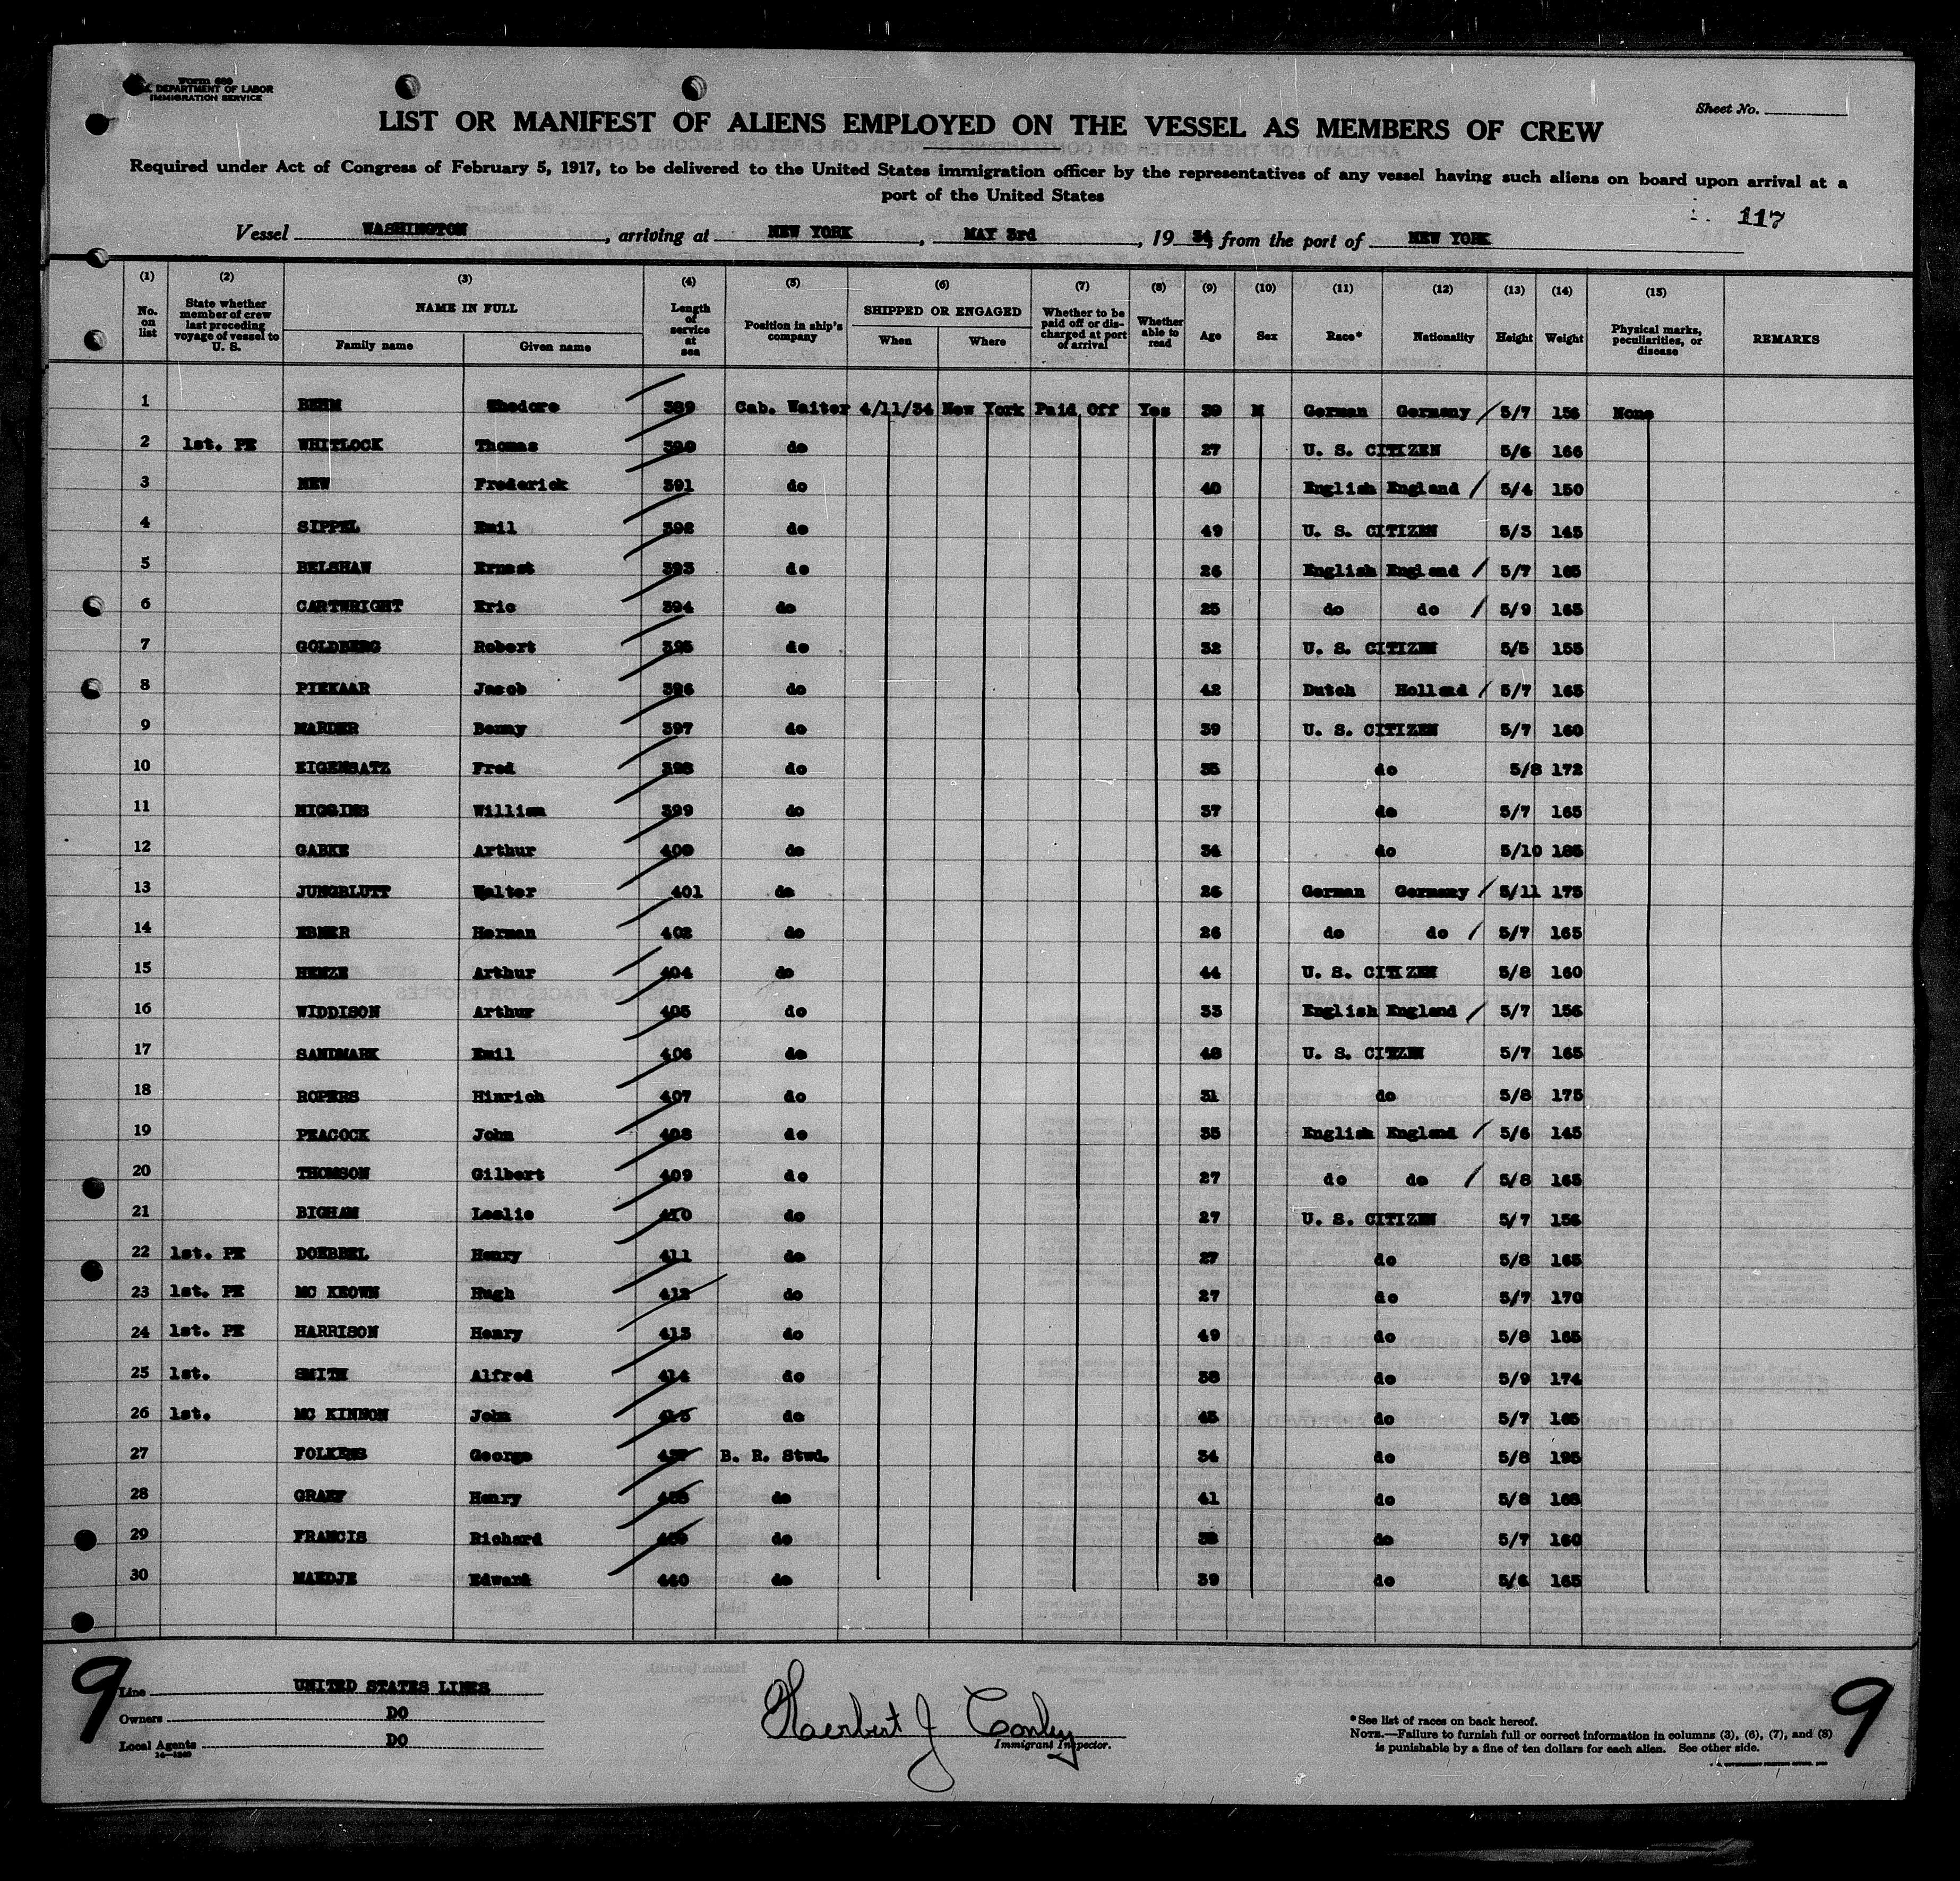 Form 689
U. S. DEPARTMENT OF LABOR
IMMIGRATION SERVICE
Sheet No.
LIST OR MANIFEST OF ALIENS EMPLOYED ON THE VESSEL AS MEMBERS OF CREW
Required under Act of Congress of February 5, 1917, to be delivered to the United States immigration officer by the representatives of any vessel having such aliens on board upon arrival at a
port of the United States
117
Vessel WASHINGTON, arriving at NEW YORK, MAY 3rd, 19 34, from the port of NEW YORK
(1) (2) (3) (4) (5) (6) (7) (8) (9) (10) (11) (12) (13) (14) (15)
No. on list State whether member of crew last preceding voyage of vessel to U. S. NAME IN FULL Family name Given name Length of service at sea Position in ship's company SHIPPED OR ENGAGED When Where Whether to be paid off or discharged at port of arrival Whether able to read Age Sex Race* Nationality Height Weight Physical marks, peculiarities, or disease REMARKS
1 BEHM Thedore 389 Cab. Waiter 4/11/34 New York Paid Off Yes 39 M German Germany 5/7 156 None
2 1st. PE WHITLOCK Thomas 390 do 27 U. S. CITIZEN 5/6 166
3 NEW Frederick 391 do 40 English England 5/4 150
4 SIPPEL Emil 392 do 49 U. S. CITIZEN 5/3 145
5 BELSHAW Ernest 393 do 26 English England 5/7 165
6 CARTWRIGHT Eric 394 do 25 do do 5/9 165
7 GOLDBERG Robert 395 do 32 U. S. CITIZEN 5/5 155
8 PIEKAAR Jacob 396 do 42 Dutch Holland 5/7 165
9 MARDER Benny 397 do 39 U. S. CITIZEN 5/7 160
10 EIGENSATZ Fred 398 do 35 do 5/8 172
11 HIGGINS William 399 do 37 do 5/7 165
12 GABKE Arthur 400 do 34 do 5/10 185
13 JUNGBLUTT Walter 401 do 26 German Germany 5/11 175
14 EBNER Herman 402 do 26 do do 5/7 165
15 HENZE Arthur 404 do 44 U. S. CITIZEN 5/8 160
16 WIDDISON Arthur 405 do 33 English England 5/7 156
17 SANDMARK Emil 406 do 48 U. S. CITZEN 5/7 165
18 ROPERS Hinrich 407 do 31 do 5/8 175
19 PEACOCK John 408 do 35 English England 5/6 145
20 THOMSON Gilbert 409 do 27 do do 5/8 165
21 BIGHAM Leslie 410 do 27 U. S. CITIZEN 5/7 156
22 1st. PE DOEBBEL Henry 411 do 27 do 5/8 165
23 1st. PE MC KEOWN Hugh 412 do 27 do 5/7 170
24 1st. PE HARRISON Henry 413 do 49 do 5/8 165
25 1st. SMITH Alfred 414 do 38 do 5/9 174
26 1st. MC KINNON John 415 do 45 do 5/7 165
27 FOLKENS George B. R. Stwd. 34 do 5/8 195
28 GRAEF Henry do 41 do 5/8 168
29 FRANCIS Richard do 38 do 5/7 160
30 MAEDJE Edward 440 do 39 do 5/6 165
9
9
Line UNITED STATES LINES
Owners DO
Local Agents DO
14—1240
Herbert J Conley
Immigrant Inspector.
*See list of races on back hereof.
NOTE.—Failure to furnish full or correct information in columns (3), (6), (7), and (8)
is punishable by a fine of ten dollars for each alien. See other side.